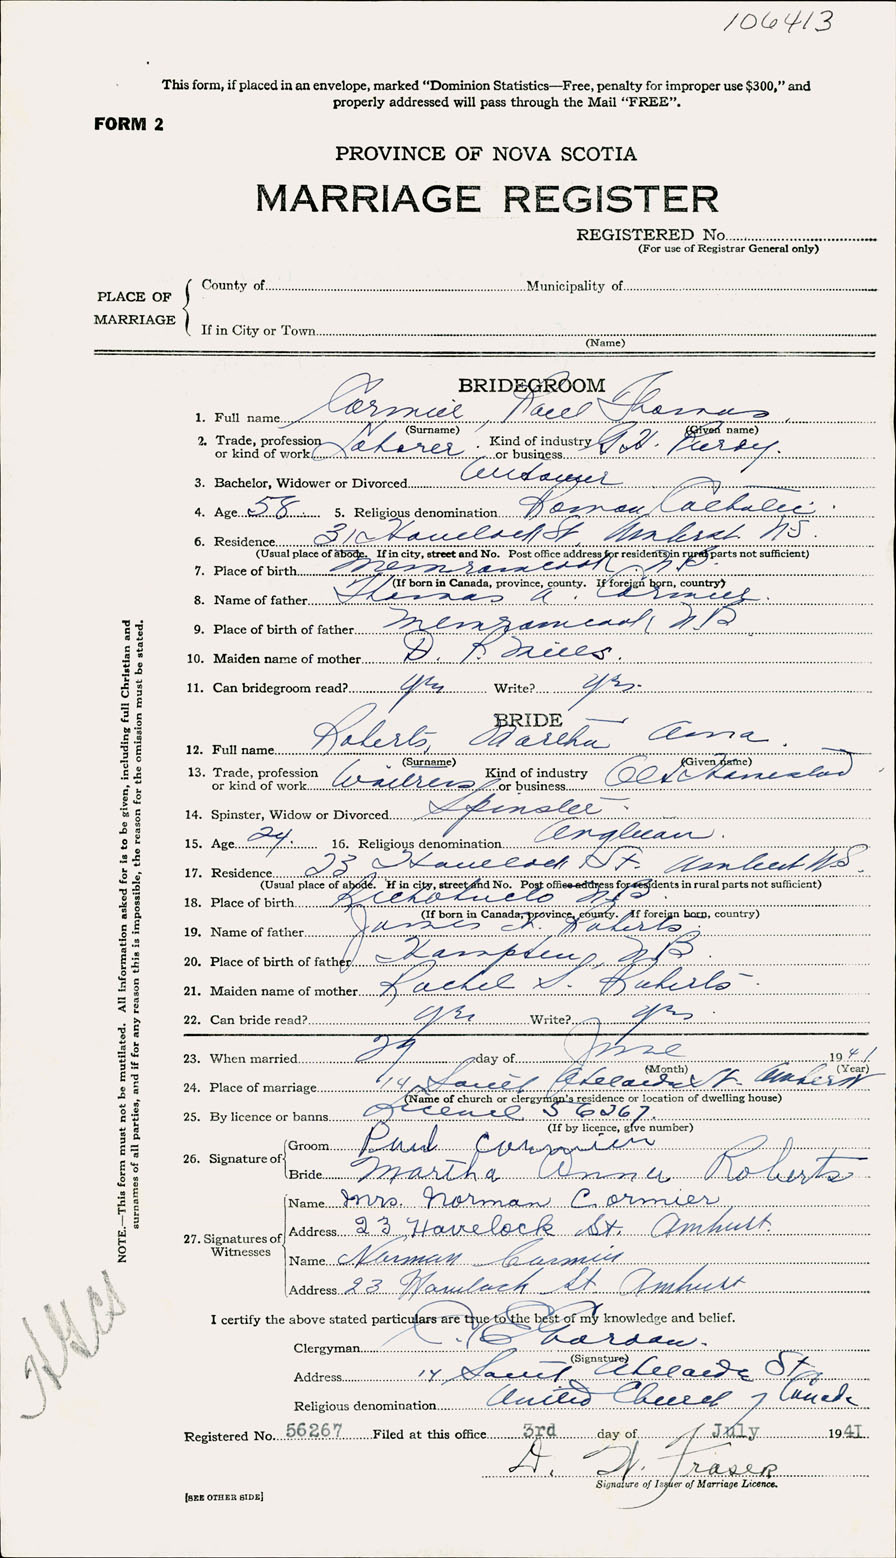 106413
This form, if placed in an envelope, marked "Dominion Statistics—Free, penalty for improper use $300," and
properly addressed will pass through the Mail "FREE".
FORM 2
PROVINCE OF NOVA SCOTIA
MARRIAGE REGISTER
REGISTERED No.
(For use of Registrar General only)
PLACE OF MARRIAGE
County of Municipality of
If in City or Town
(Name)
BRIDEGROOM
1. Full name Cormier, Thomas
(Surname) (Given name)
2. Trade, profession or kind of work Laborer. Kind of industry or business
3. Bachelor, Widower or Divorced Widower
4. Age 58 5. Religious denomination Roman Catholic
6. Residence 31 Havelock St, Amherst N.S.
(Usual place of abode. If in city, street and No. Post office address for residents in rural parts not sufficient)
7. Place of birth Memramcook N.B.
(If born in Canada, province, county. If foreign born, country)
8. Name of father Thomas A. Cormier.
9. Place of birth of father Memramcook, N.B
10. Maiden name of mother D.
11. Can bridegroom read? yes Write? yes.
BRIDE
12. Full name Roberts, Martha Anna.
(Surname) (Given name)
13. Trade, profession or kind of work Waitress Kind of industry or business
14. Spinster, Widow or Divorced Spinster
15. Age 24. 16. Religious denomination Anglican.
17. Residence 23 Havelock St. Amherst N.S.
(Usual place of abode. If in city, street and No. Post office address for residents in rural parts not sufficient)
18. Place of birth N.B.
(If born in Canada, province, county. If foreign born, country)
19. Name of father James Roberts.
20. Place of birth of father Hampton, N.B.
21. Maiden name of mother Rachel S. Roberts
22. Can bride read? yes Write? yes.
23. When married 29 day of June 1941
(Month) (Year)
24. Place of marriage 14 South Adelaide St. Amherst
(Name of church or clergyman's residence or location of dwelling house)
25. By licence or banns Licence 56267.
(If by licence, give number)
26. Signature of
Groom Cormier
Bride Martha Anna Roberts
27. Signatures of Witnesses
Name Mrs. Norman Cormier
Address 23 Havelock St. Amhurst.
Name Norman Cormier
Address 23 Havelock St Amhurst
I certify the above stated particulars are true to the best of my knowledge and belief.
Clergyman
(Signature)
Address 14 South Adelaide St.
Religious denomination United Church of Canada
Registered No. 56267 Filed at this office 3rd day of July 1941
D. W. Fraser
Signature of Issuer of Marriage Licence.
[SEE OTHER SIDE]
NOTE.—This form must not be mutilated. All information asked for is to be given, including full Christian and
surnames of all parties, and if for any reason this is impossible, the reason for the omission must be stated.